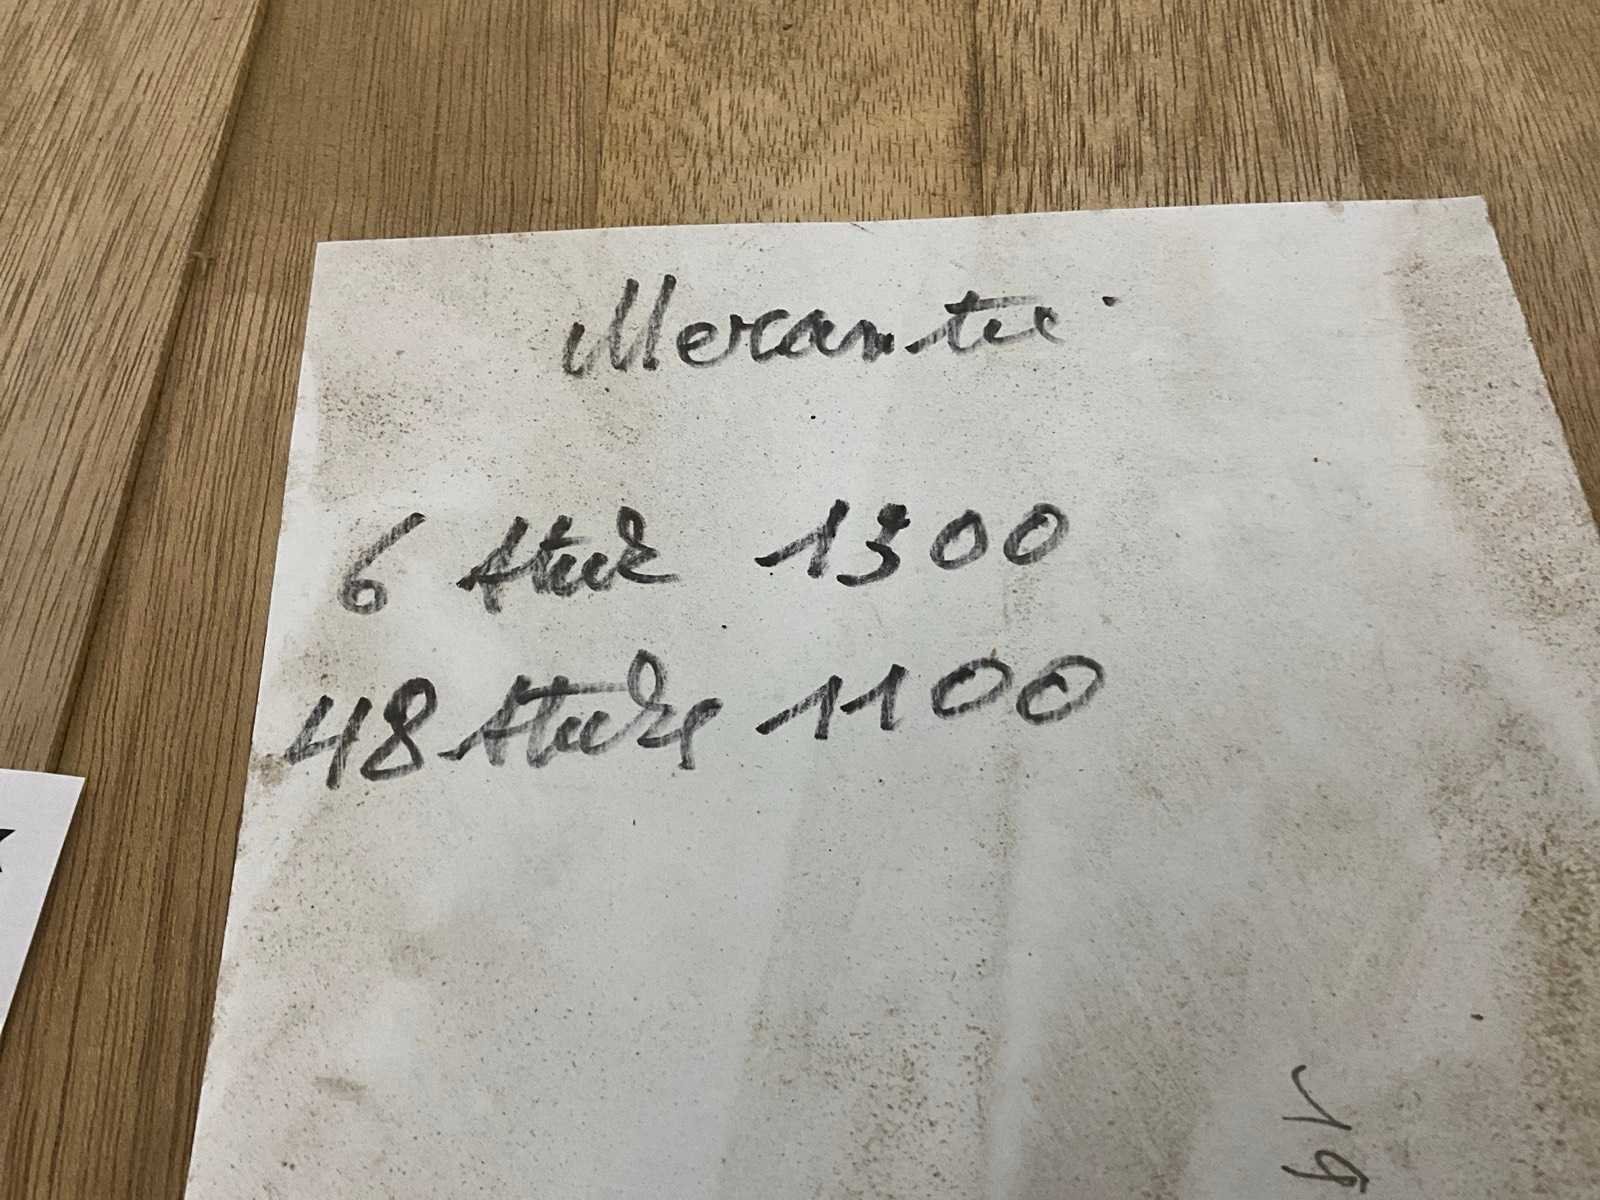 Mercantil
6 Stück 1300
48 Stücke 1100
19